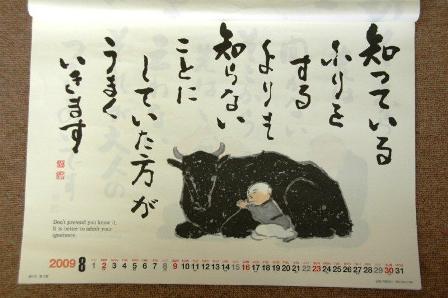 知っている
ふりを
する
よりも
知らない
ことに
していた方が
うまく
いきます
Don't pretend you know it.
It is better to admit your
ignorance.
2009 8 1 2 3 4 5 6 7 8 9 10 11 12 13 14 15 16 17 18 19 20 21 22 23 24 25 26 27 28 29 30 31